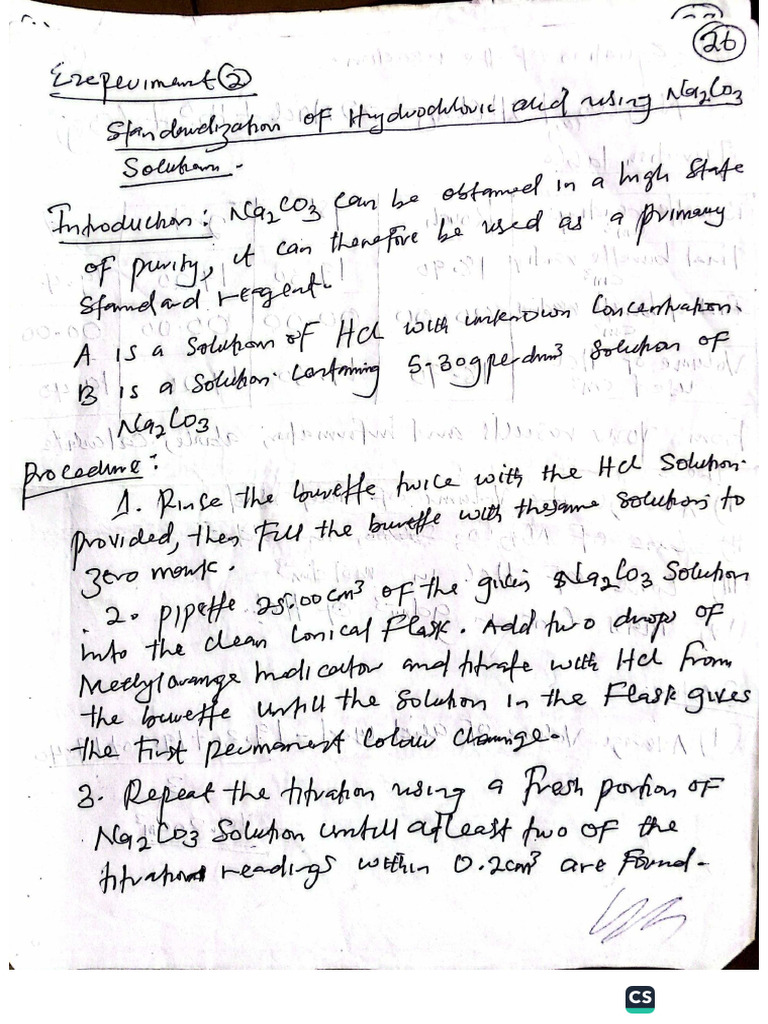 26
Experiment (2)
Standardization of Hydrochloric acid using Na2CO3
Solution.
Introduction: Na2CO3 can be obtained in a high state
of purity, it can therefore be used as a primary
standard reagent.
A is a solution of HCl with unknown concentration.
B is a solution containing 5.30g per dm3 solution of
Na2CO3
Procedure:
1. Rinse the burette twice with the HCl solution
provided, then fill the burette with the same solution to
zero mark.
2. pipette 25.00cm3 of the given Na2CO3 Solution
into the clean conical flask. Add two drop of
Methyl orange Indicator and titrate with HCl from
the burette untill the solution in the flask gives
the first permanent colour change.
3. Repeat the titration using a fresh portion of
Na2CO3 Solution untill atleast two of the
titration readings within 0.2cm3 are found.
CS